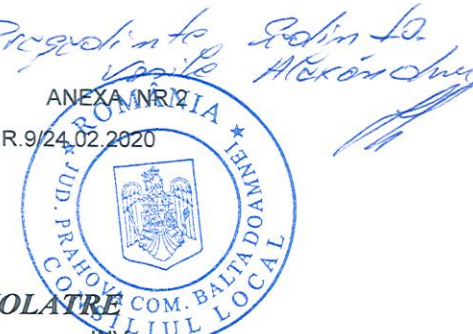 Președinte Ședință
Vasile Alexandru
ANEXA NR 2
R.9/24.02.2020
ROMÂNIA
JUD. PRAHOVA COM. BALTA DOAMNEI
CONSILIUL LOCAL
VOLATRE